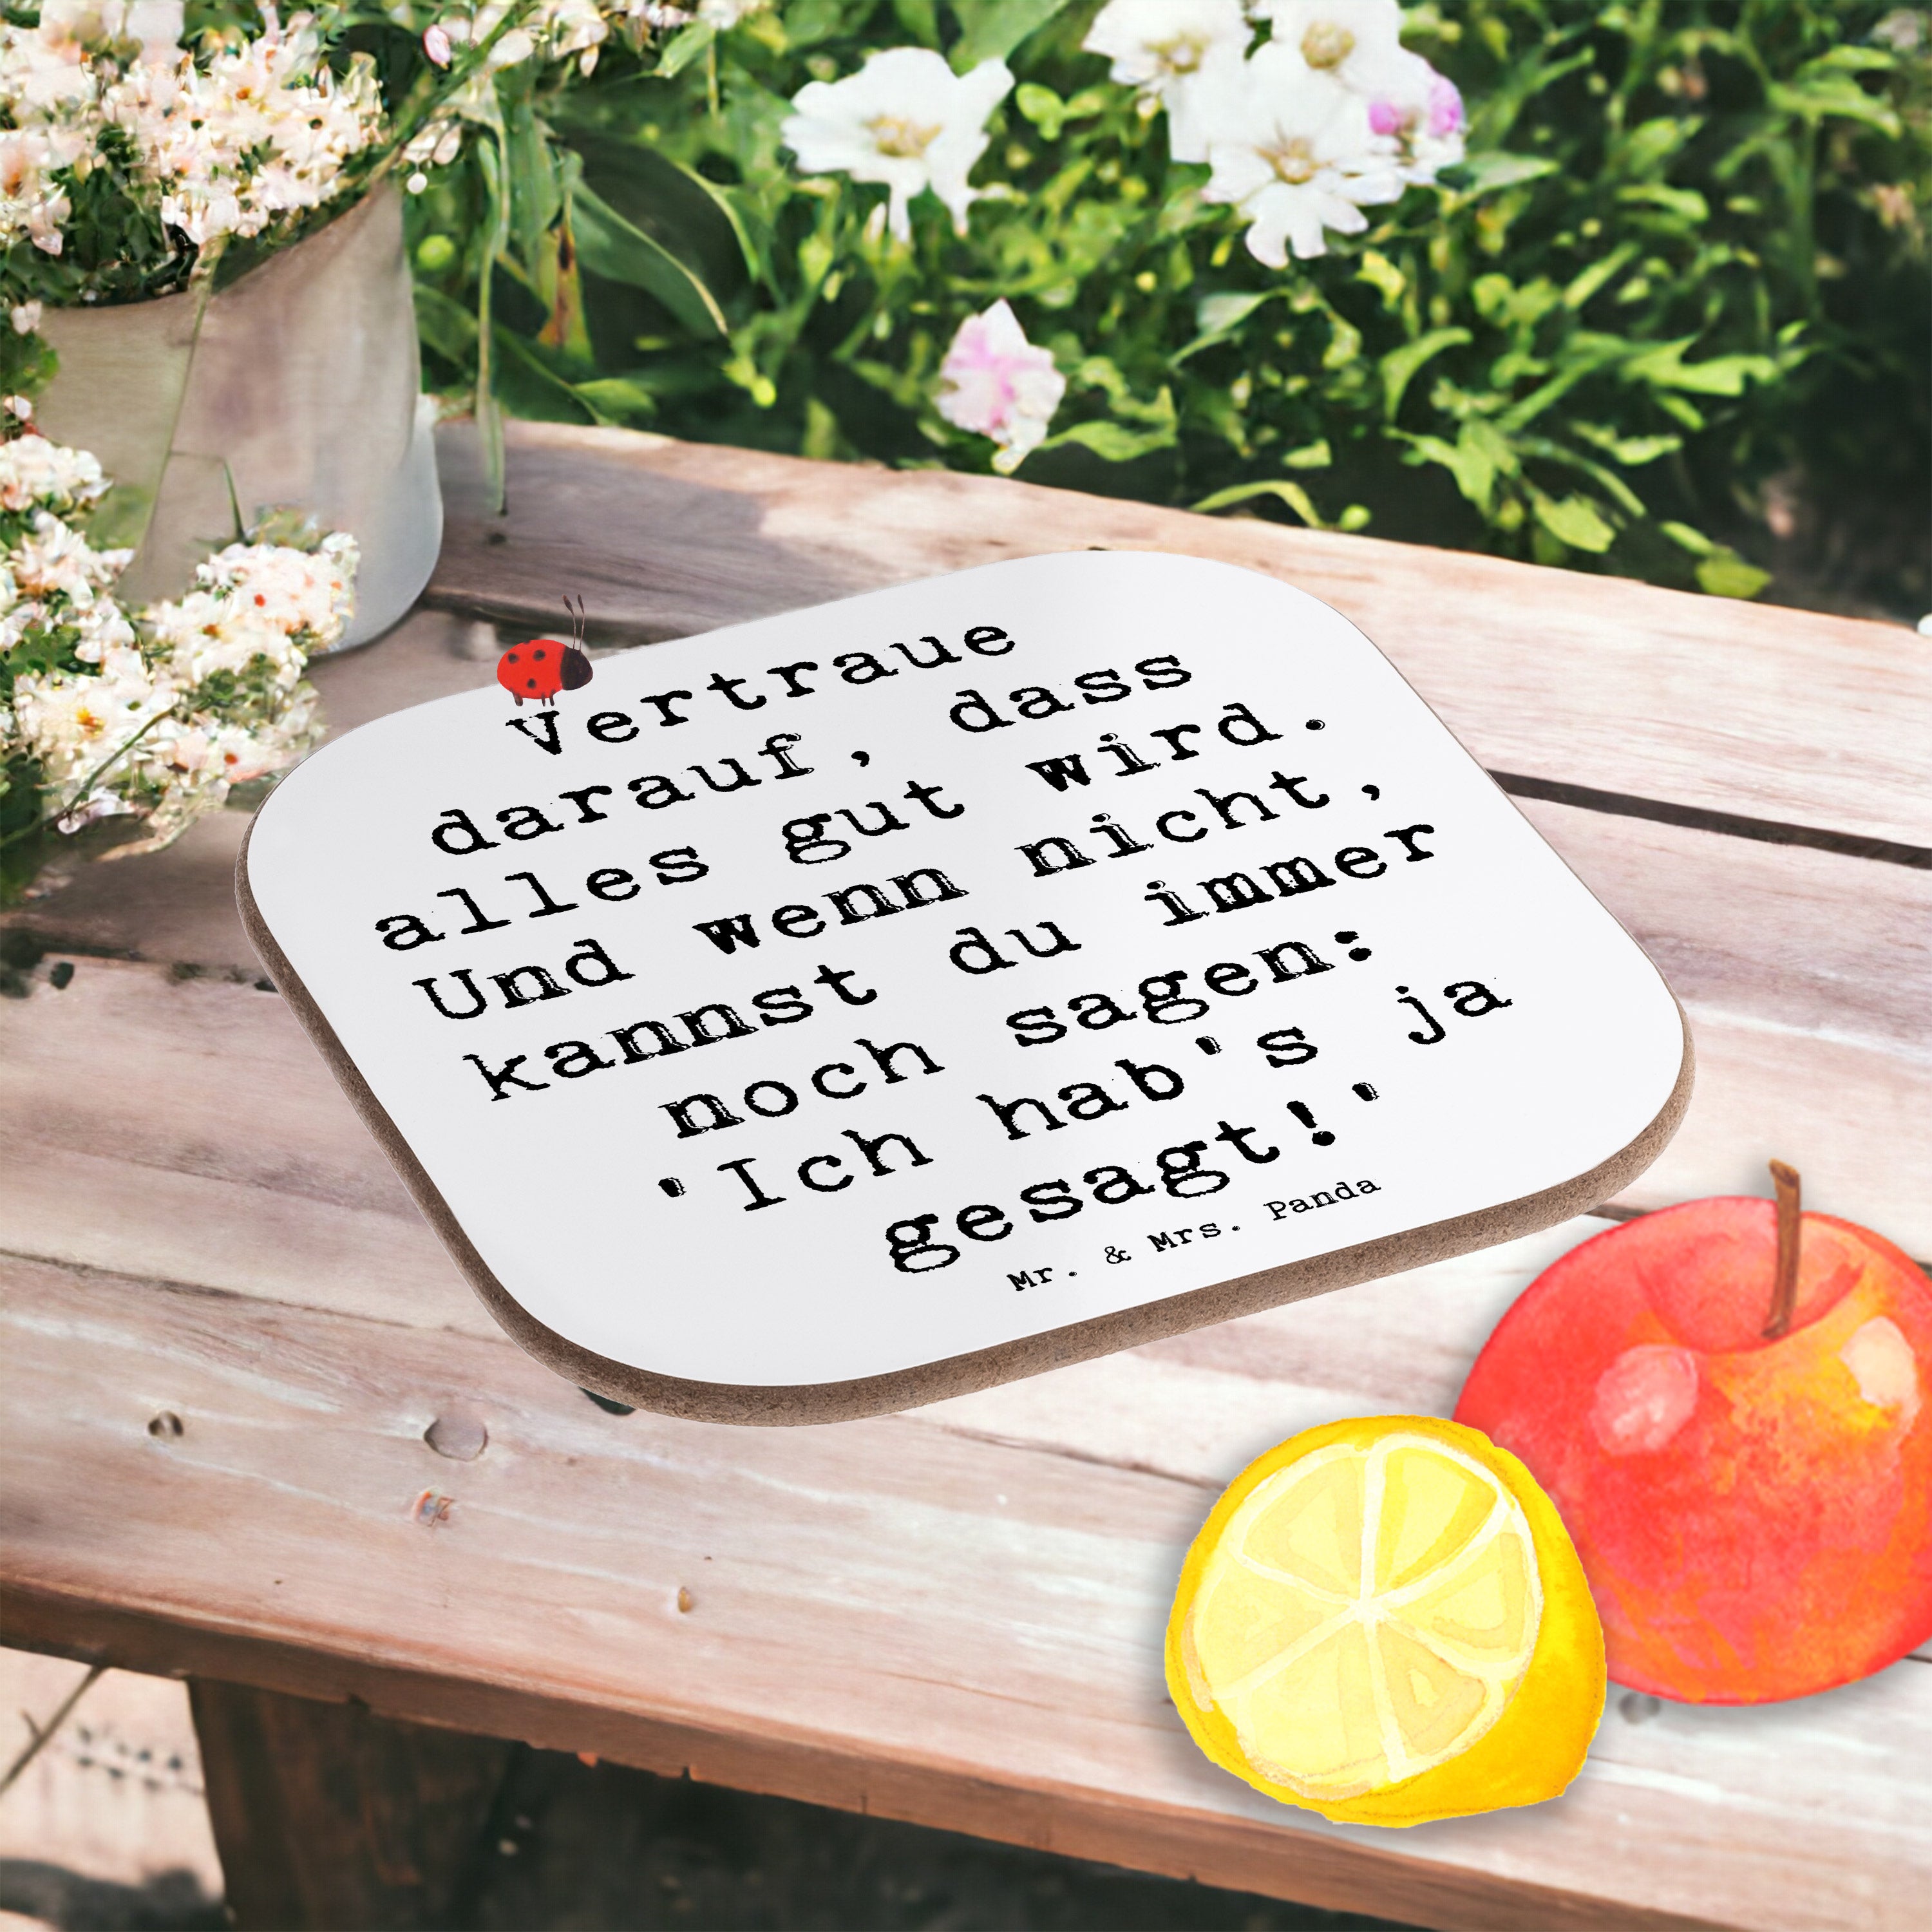 Vertraue
darauf, dass
alles gut wird.
Und wenn nicht,
kannst du immer
noch sagen:
'Ich hab's ja
gesagt!'
Mr. & Mrs. Panda